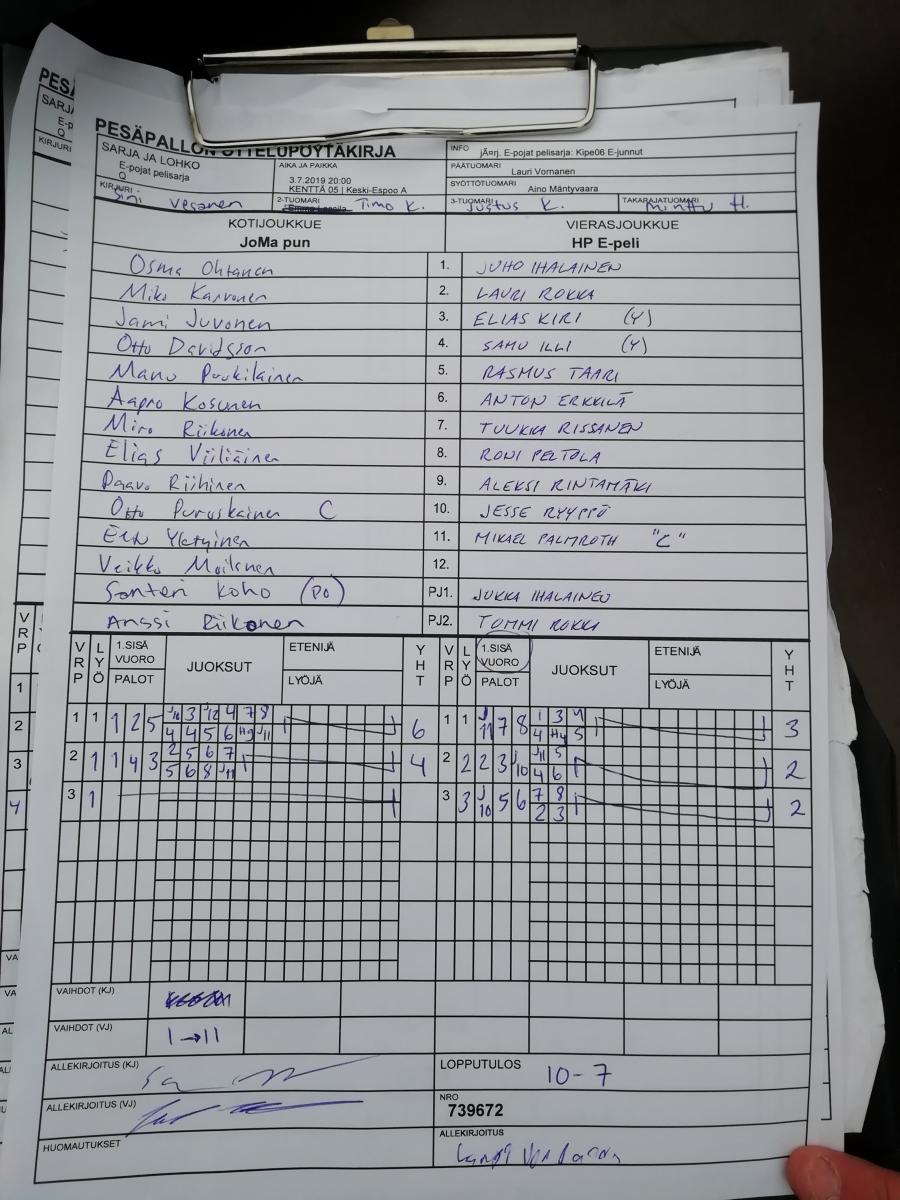 PESÄPALLON OTTELUPÖYTÄKIRJA
SARJA JA LOHKO
E-pojat pelisarja
Q
AIKA JA PAIKKA
3.7.2019 20:00
KENTTÄ 05 | Keski-Espoo A
INFO jÃ¤rj. E-pojat pelisarja: Kipe06 E-junnut
PÄÄTUOMARI
Lauri Vornanen
SYÖTTÖTUOMARI
Aino Mäntyvaara
KIRJURI Sini Vesanen
2-TUOMARI Timo K.
3-TUOMARI Justus K.
TAKARAJATUOMARI Minttu H.
KOTIJOUKKUE
JoMa pun
VIERASJOUKKUE
HP E-peli
Osma Ohtanen 1. JUHO IHALAINEN
Miko Karvonen 2. LAURI ROKKA
Jami Juvonen 3. ELIAS KIRI (Y)
Otto Davidsson 4. SAMU ILLI (Y)
Manu Puukilainen 5. RASMUS TAARI
Aapro Kosunen 6. ANTON ERKKILÄ
Miro Riikonen 7. TUUKKA RISSANEN
Elias Viiliäinen 8. RONI PELTOLA
Paavo Riihinen 9. ALEKSI RINTAMÄKI
Otto Puruskainen C 10. JESSE RYYPPÖ
11. MIKAEL PALMROTH "C"
Veikko Moilanen 12.
Santeri Koho (PO) PJ1. JUKKA IHALAINEN
Anssi Riikonen PJ2. TOMMI ROKKA
VRP LYÖ 1.SISÄ VUORO PALOT JUOKSUT ETENIJÄ LYÖJÄ YHT VRP LYÖ 1.SISÄ VUORO PALOT JUOKSUT ETENIJÄ LYÖJÄ YHT
1 1 1 2 5 J10 3 J12 4 7 8 6 1 1 J11 7 8 1 3 4 3
4 4 5 6 H9 J11 4 H4 5
2 1 1 4 3 2 5 6 7 4 2 2 2 3 J10 J11 5 2
5 6 8 J11 4 6
3 1 3 3 J10 5 6 7 8 2
2 3
VAIHDOT (KJ)
VAIHDOT (VJ) 1→11
ALLEKIRJOITUS (KJ)
LOPPUTULOS 10-7
ALLEKIRJOITUS (VJ)
NRO
739672
HUOMAUTUKSET
ALLEKIRJOITUS
Lauri Vornanen